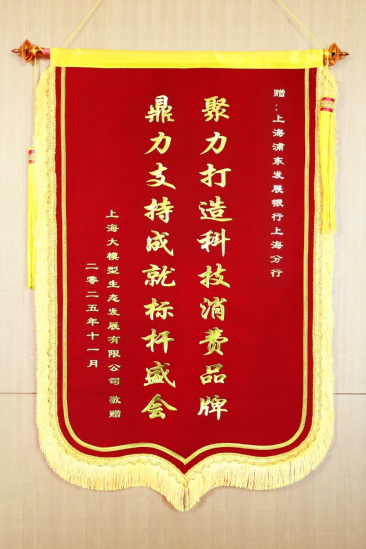 赠：上海浦东发展银行上海分行
聚力打造科技消费品牌
鼎力支持成就标杆盛会
上海大模型生态发展有限公司 敬赠
二零二五年十一月